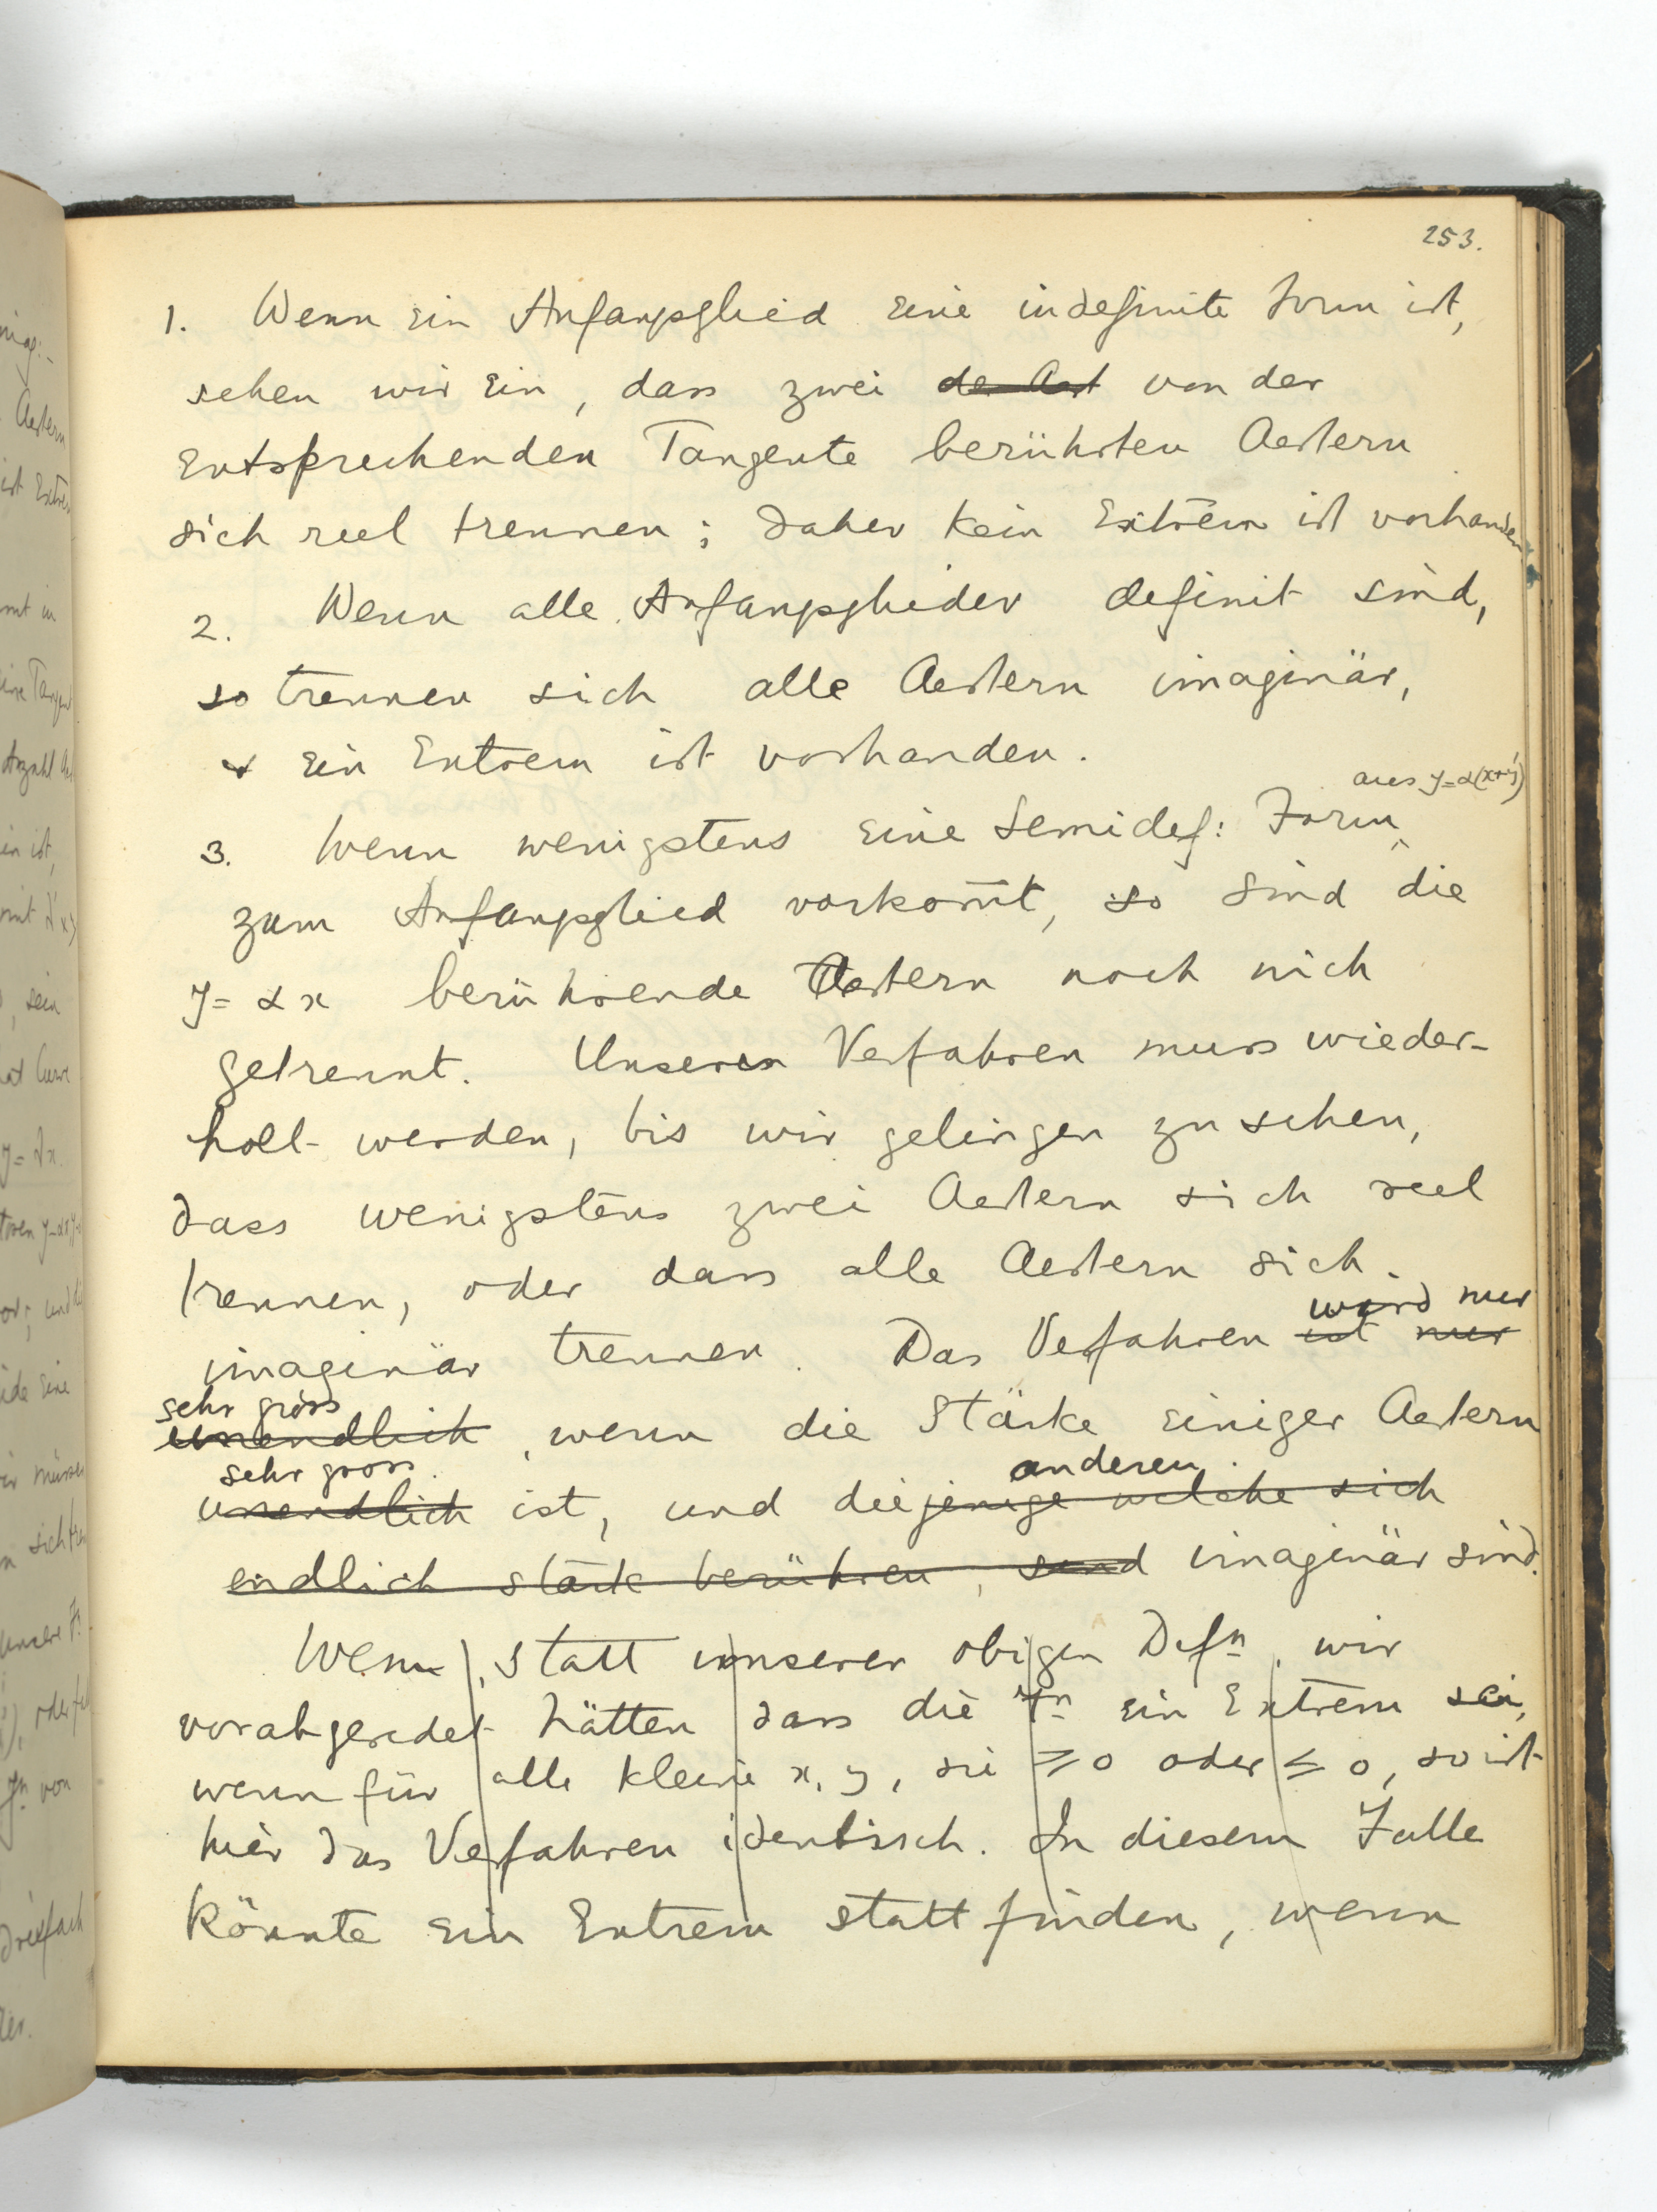 253.
1. Wenn ein Anfangsglied eine indefinite Form ist,
sehen wir ein, dass zwei der Aest von der
entsprechenden Tangente berührten Aestern
sich reel trennen; daher kein Extrem ist vorhanden
2. Wenn alle Anfangsglieder definit sind,
so trennen sich alle Aestern imaginär,
& ein Extrem ist vorhanden.
aus y=α(x+y')
3. Wenn wenigstens eine Semidef: Form
zum Anfangsglied vorkom̄t, so sind die
y = αx berührende Aestern noch nich
getrennt. Unseren Verfahren muss wieder-
holt werden, bis wir gelingen zu sehen,
dass wenigstens zwei Aestern sich reel
trennen, oder dass alle Aestern sich
wird nur
imaginär trennen. Das Verfahren ist nur
sehr gross
unendlich, wenn die Stärke einiger Aestern
sehr gross anderen
unendlich ist, und diejenige welche sich
endlich stark berühren, sind imaginär sind.
Wenn, statt unserer obigen Defn, wir
vorabgeredet hätten dass die Fn ein Extrem sei,
wenn für alle kleine x, y, sie ≥ 0 oder ≤ 0, so ist
hier das Verfahren identisch. In diesem Falle
könnte ein Extrem stattfinden, wenn